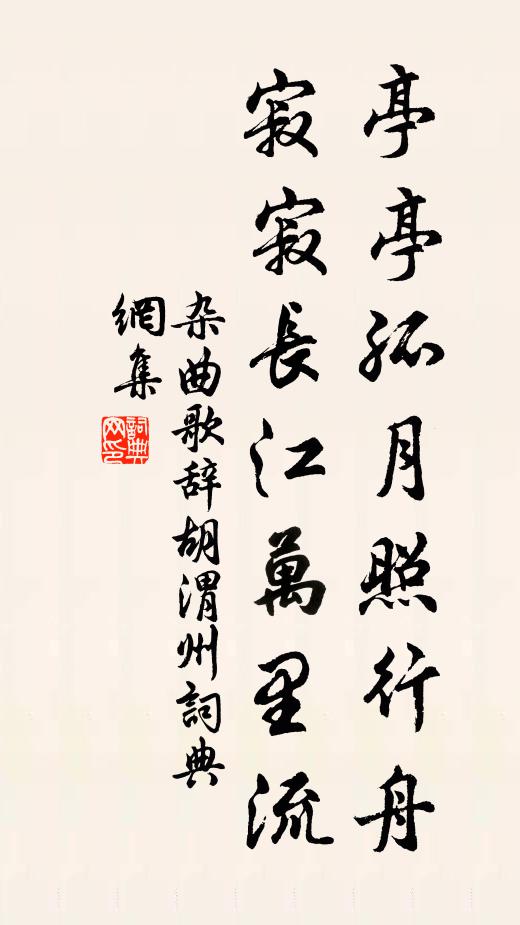 亭亭孤月照行舟
寂寂長江萬里流
杂曲歌辞胡渭州詞典
網集
詞典
网印